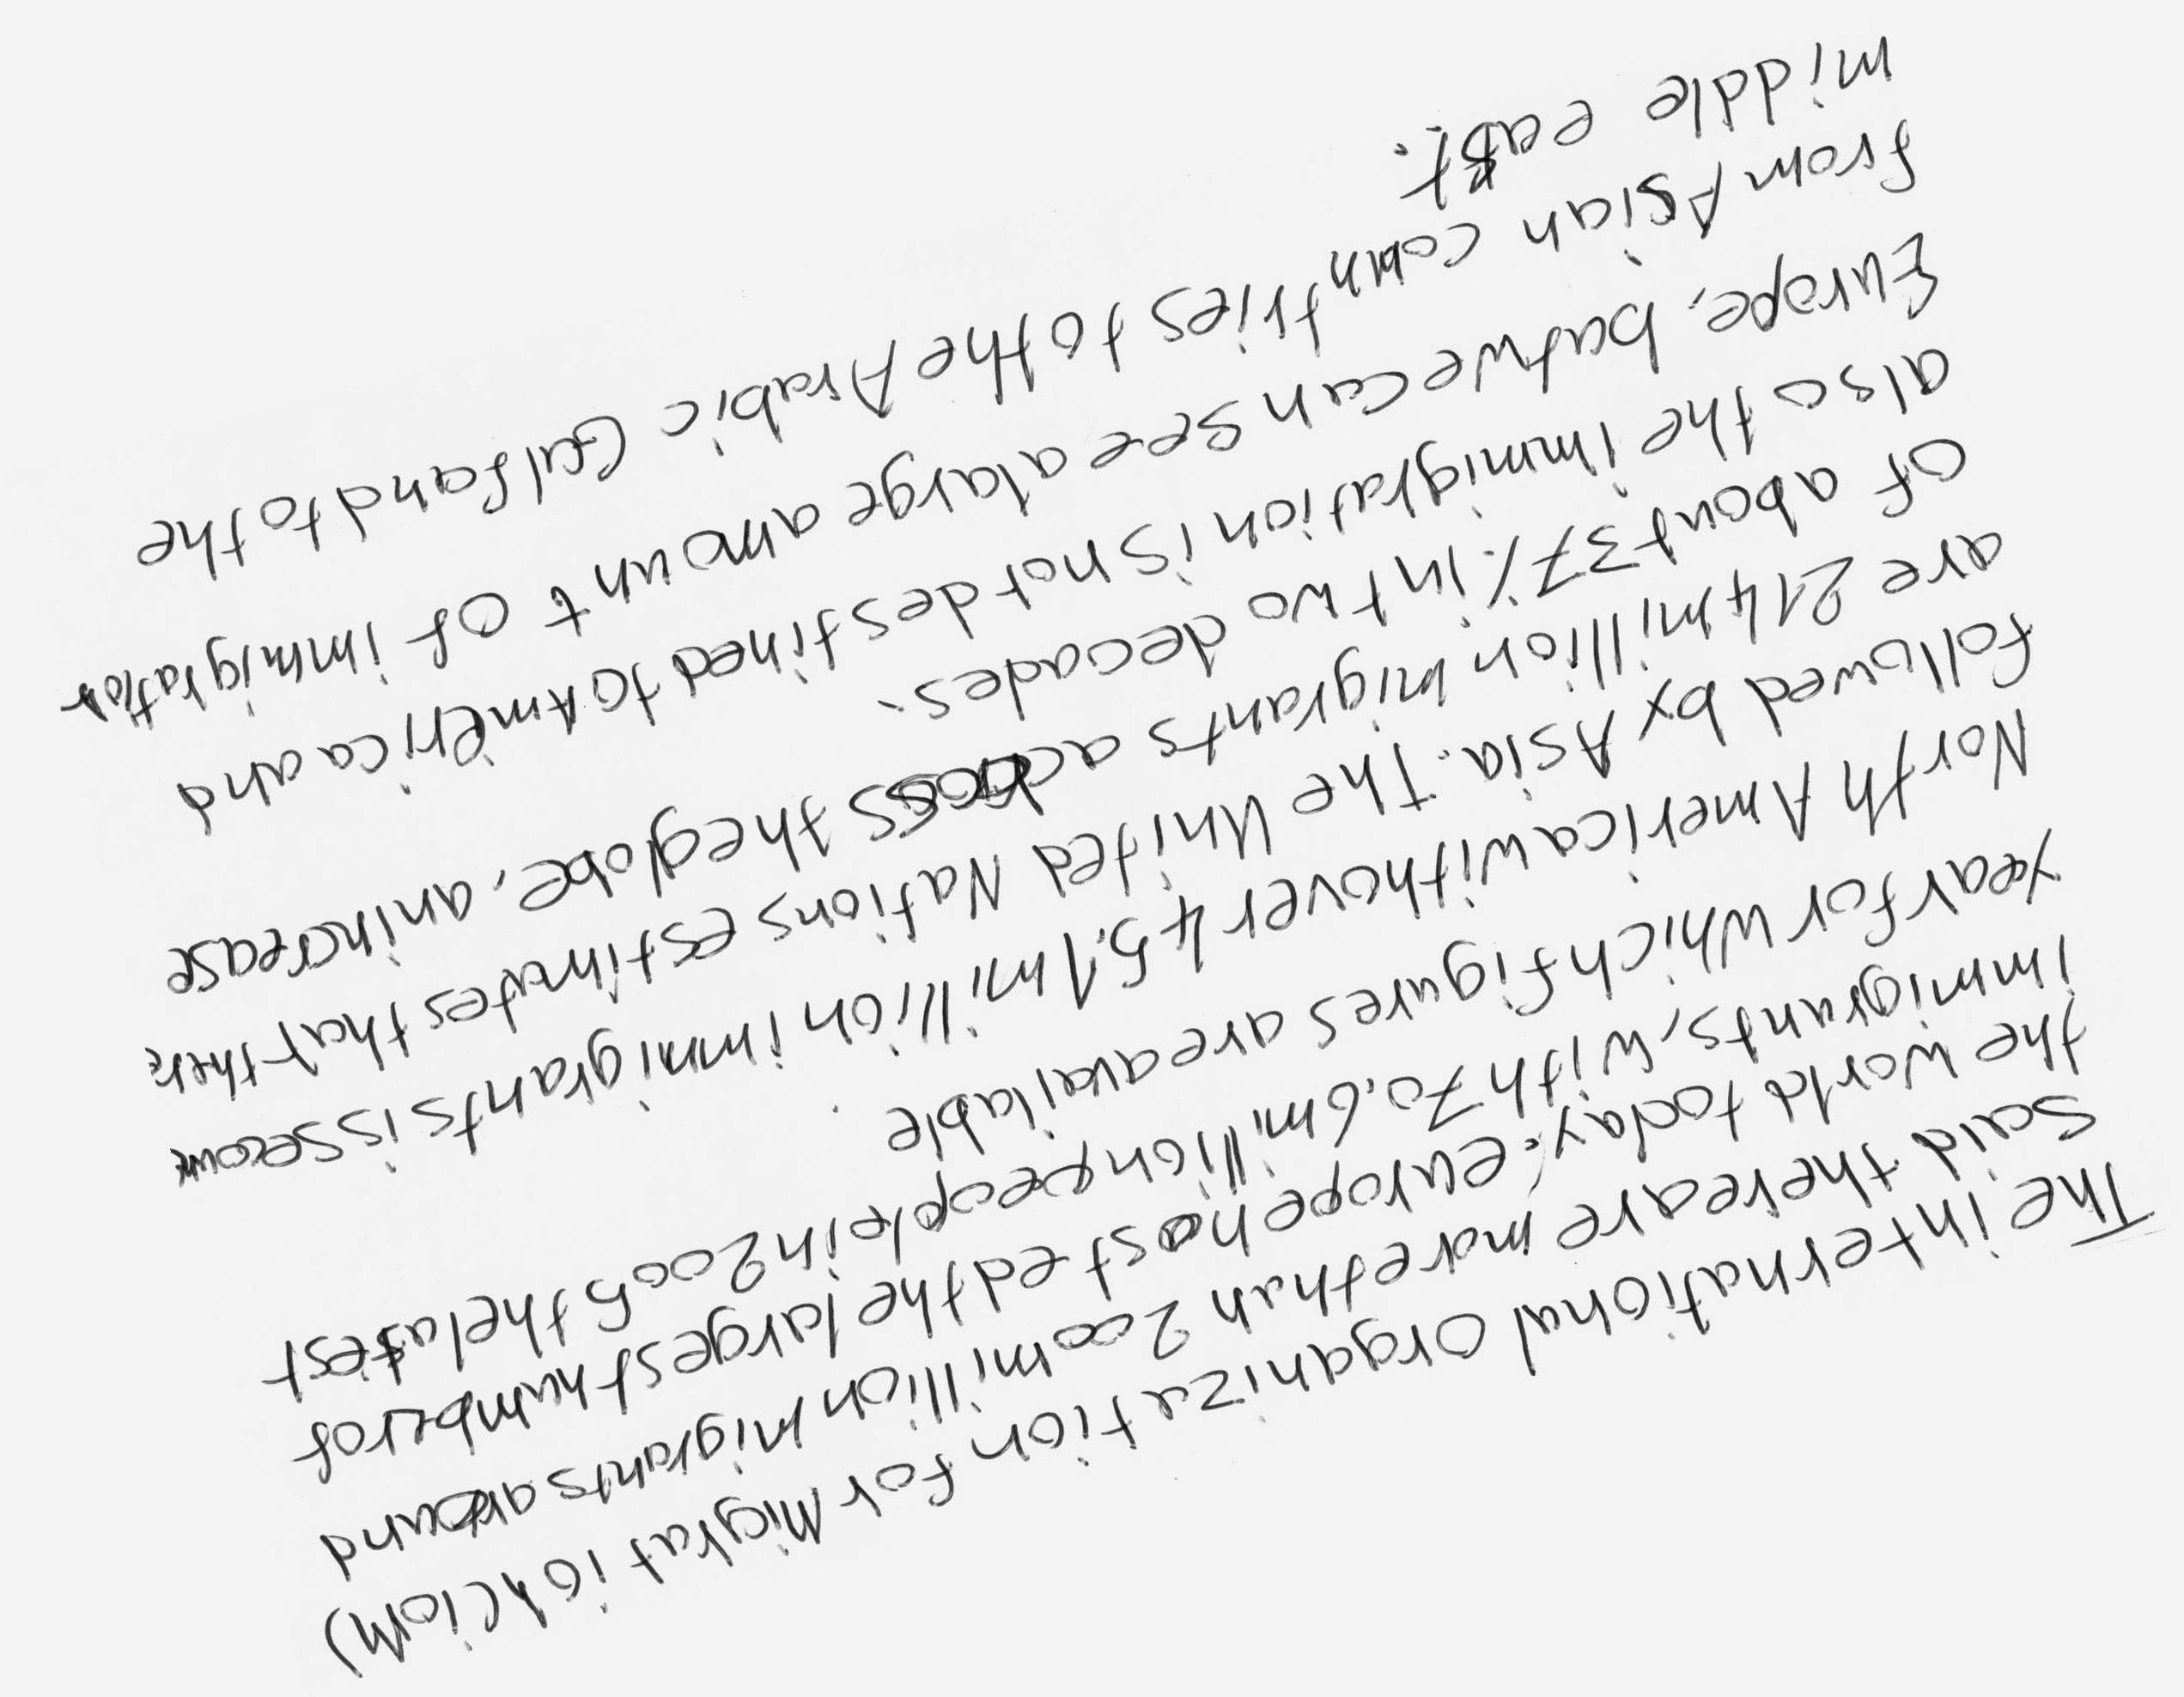 The international organization for Migration (ioM)
said there are more than 200 million migrants around
the world today; europe hosted the largest number of
immigrants, with 70.6 million people in 2005 the latest
year for which figures are available.
North America with over 45.1 million immigrants is second
followed by Asia. The United Nations estimates that there
are 214 million migrants across the globe, an increase
of about 37% in two decades.
also the immigration is not destined to America and
Europe, but we can see a large amount of immigration
from Asian countries to the Arabic Gulf and to the
middle east.